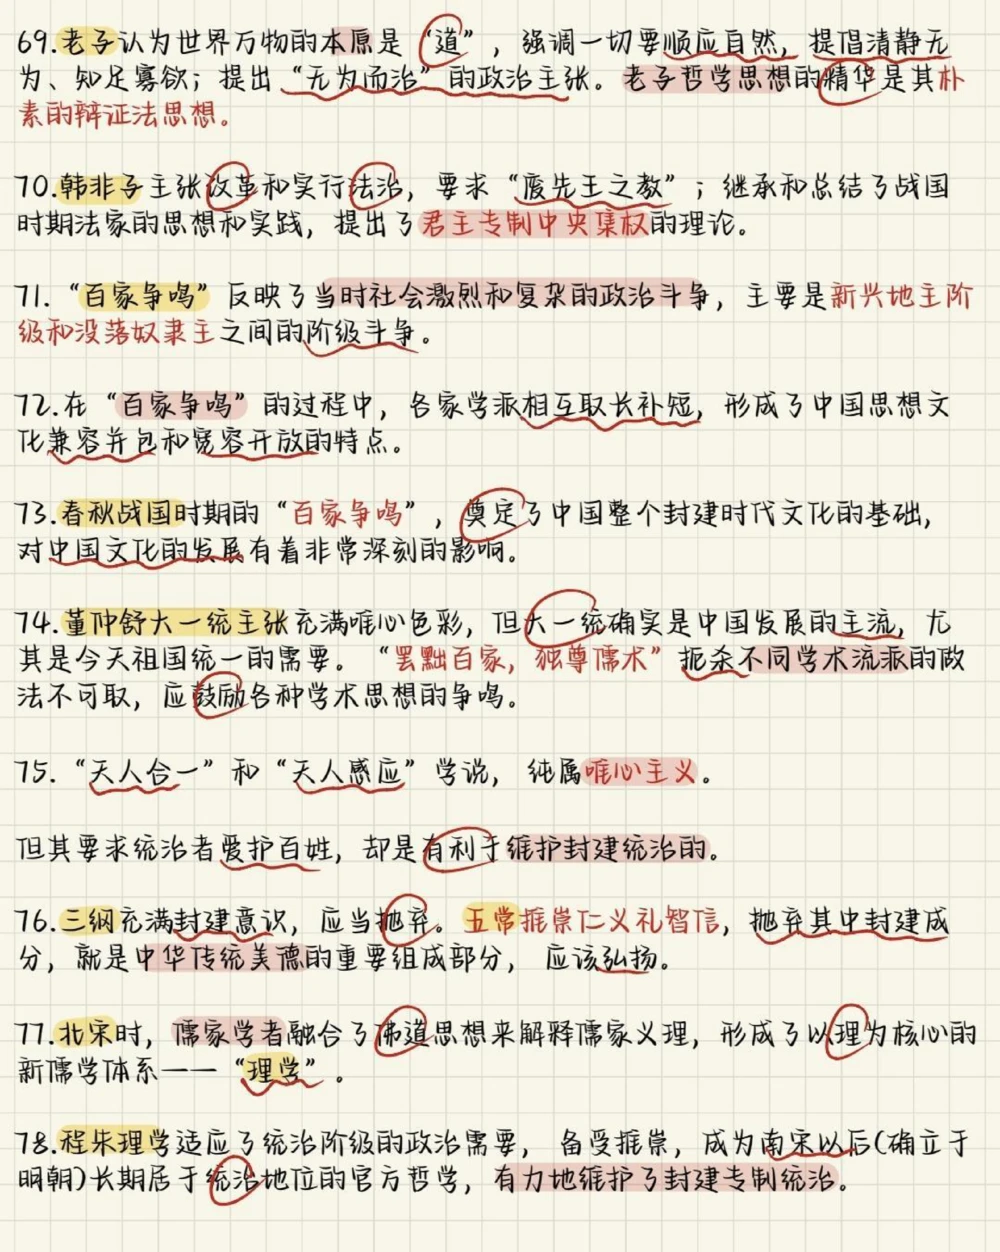 69.老子认为世界万物的本原是“道”，强调一切要顺应自然，提倡清静无
为、知足寡欲；提出“无为而治”的政治主张。老子哲学思想的精华是其朴
素的辩证法思想。
70.韩非子主张改革和实行法治，要求“废先王之教”；继承和总结了战国
时期法家的思想和实践，提出了君主专制中央集权的理论。
71.“百家争鸣”反映了当时社会激烈和复杂的政治斗争，主要是新兴地主阶
级和没落奴隶主之间的阶级斗争。
72.在“百家争鸣”的过程中，各家学派相互取长补短，形成了中国思想文
化兼容并包和宽容开放的特点。
73.春秋战国时期的“百家争鸣”，奠定了中国整个封建时代文化的基础，
对中国文化的发展有着非常深刻的影响。
74.董仲舒大一统主张充满唯心色彩，但大一统确实是中国发展的主流，尤
其是今天祖国统一的需要。“罢黜百家，独尊儒术”扼杀不同学术流派的政
法不可取，应鼓励各种学术思想的争鸣。
75.“天人合一”和“天人感应”学说，纯属唯心主义。
但其要求统治者爱护百姓，却是有利于维护封建统治的。
76.三纲充满封建意识，应当抛弃。五常推崇仁义礼智信，抛弃其中封建成
分，就是中华传统美德的重要组成部分，应该弘扬。
77.北宋时，儒家学者融合了佛道思想来解释儒家义理，形成了以理为核心的
新儒学体系——“理学”。
78.程朱理学适应了统治阶级的政治需要，备受推崇，成为南宋以后(确立于
明朝)长期居于统治地位的官方哲学，有力地维护了封建专制统治。